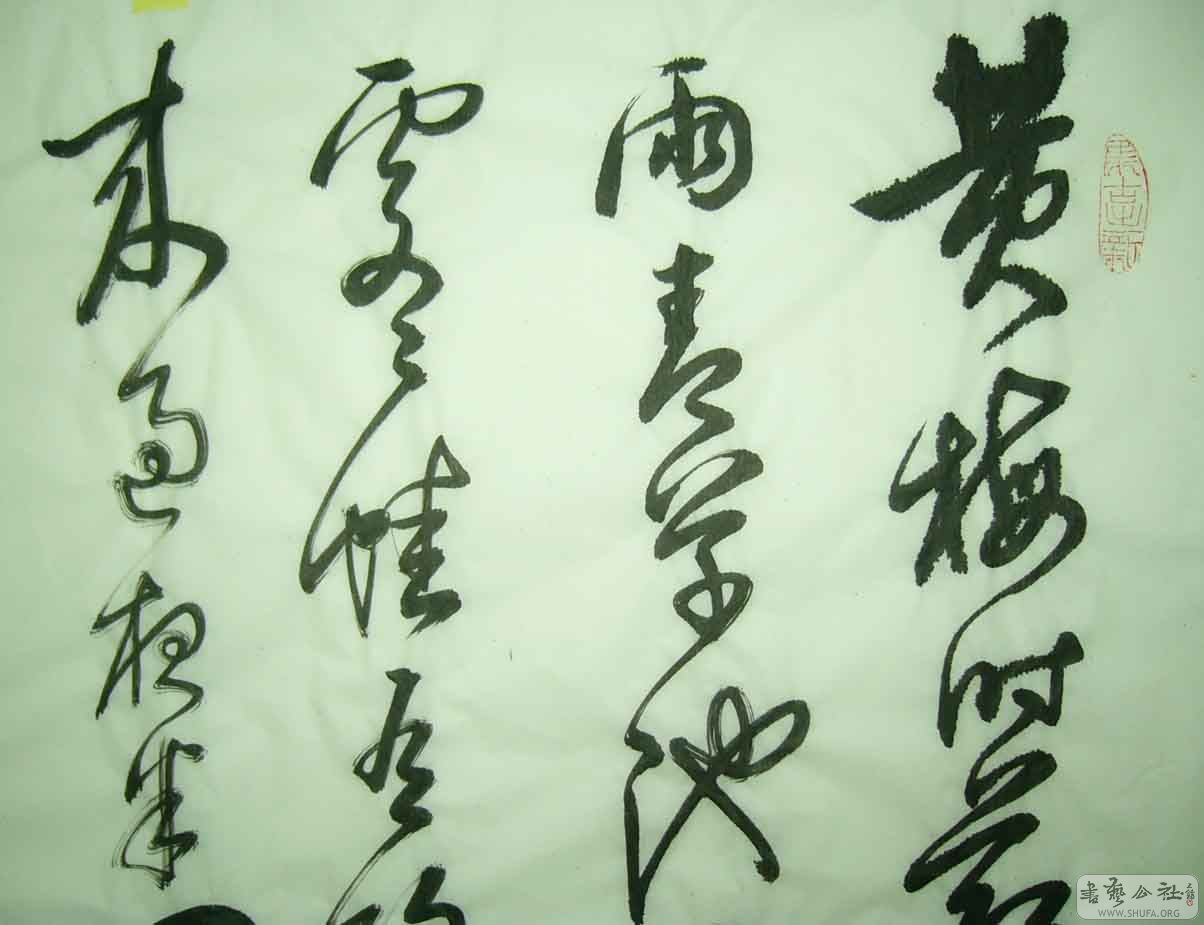 黄梅时节
雨青草池
處々蛙有约
来过夜半
書藝公社
WWW.SHUFA.ORG